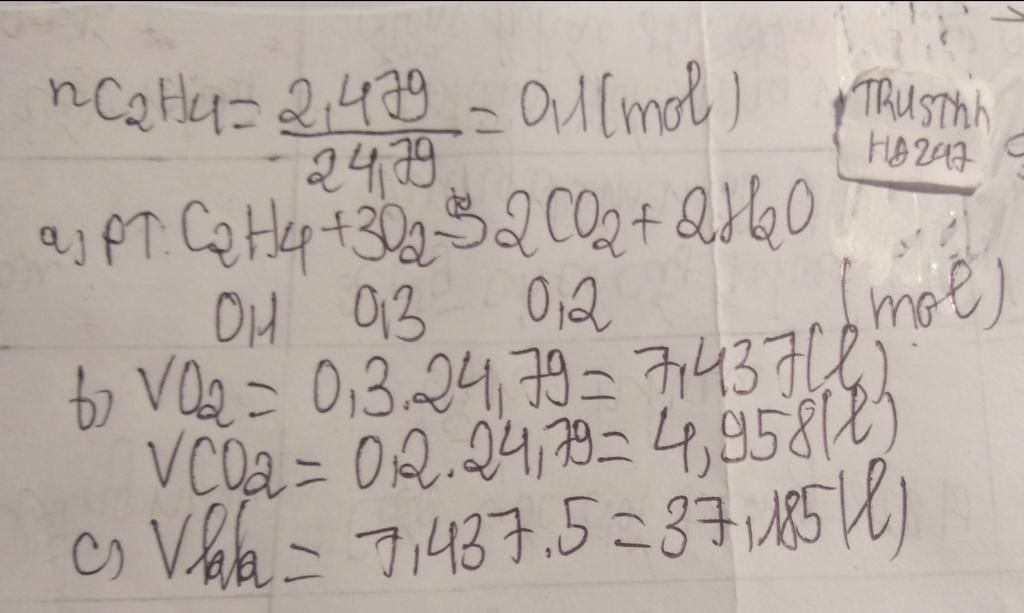 nC2H4 = 2,479/24,79 = 0,1 (mol)
TRUSThh
HD247
a) PT: C2H4 + 3O2 → 2CO2 + 2H2O
0,1 0,3 0,2 (mol)
b) VO2 = 0,3.24,79 = 7,437 (l)
VCO2 = 0,2.24,79 = 4,958 (l)
c) Vkk = 7,437.5 = 37,185 (l)